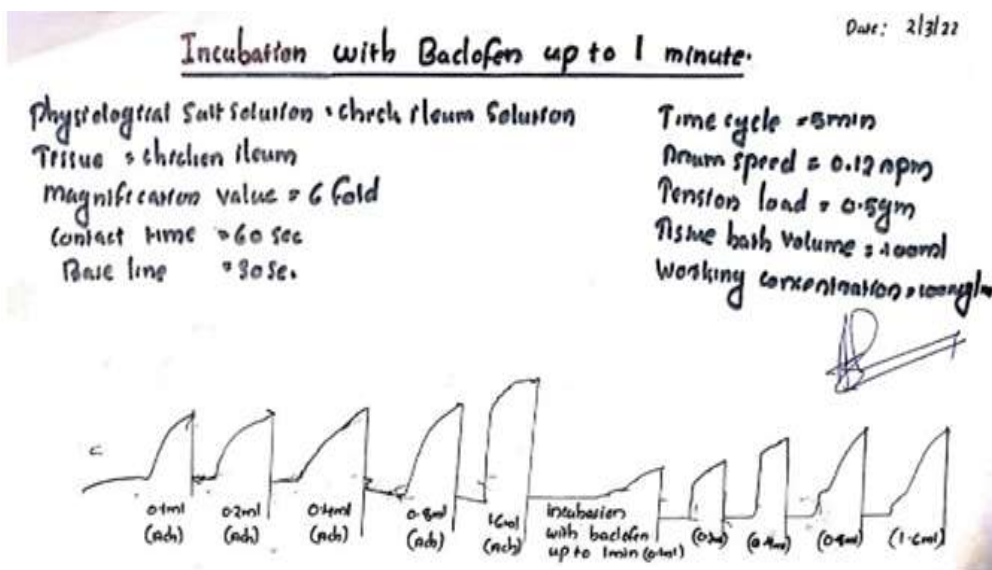 Date: 2/3/22
Incubation with Baclofen up to 1 minute.
Physiological Salt solution : chick ileum Solution
Tissue : chicken ileum
Magnification value = 6 fold
Contact time = 60 sec
Base line = 30 Sec.
Time cycle = 5min
Drum speed = 0.12 rpm
Tension load = 0.5gm
Tissue bath volume :
Working concentration
c
0.1ml
(Ach)
0.2ml
(Ach)
0.4ml
(Ach)
0.8ml
(Ach)
1.6ml
(Ach)
incubation
with baclofen
up to 1min (0.1ml)
(0.2ml)
(0.4ml)
(0.8ml)
(1.6ml)